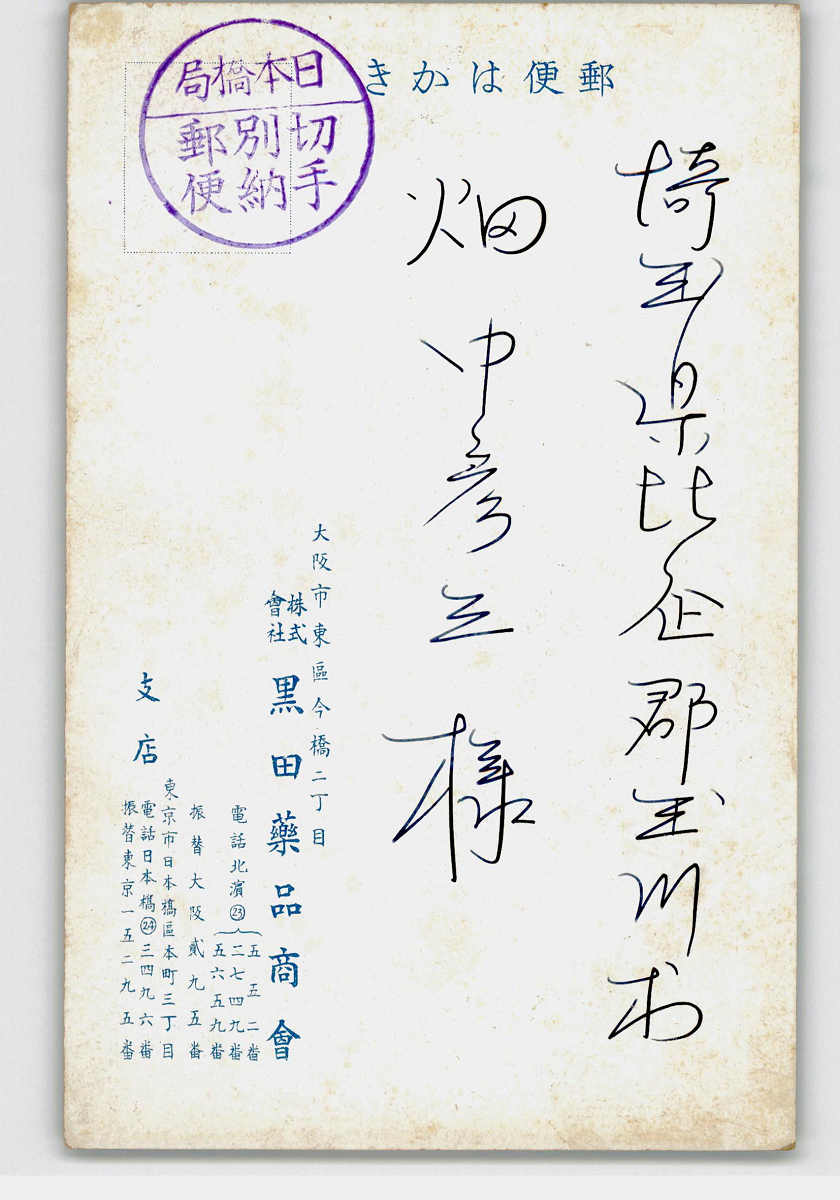 郵便はかき
日本橋局
切手
別納
郵便
埼玉県比企郡玉川村
畑中彦三様
大阪市東區今橋二丁目
株式會社 黒田藥品商會
電話北濱㉓ 五五二番
二七四九番
五六五九番
振替大阪貳九五番
支店
東京市日本橋區本町三丁目
電話日本橋㉔三四九六番
振替東京一五二九五番